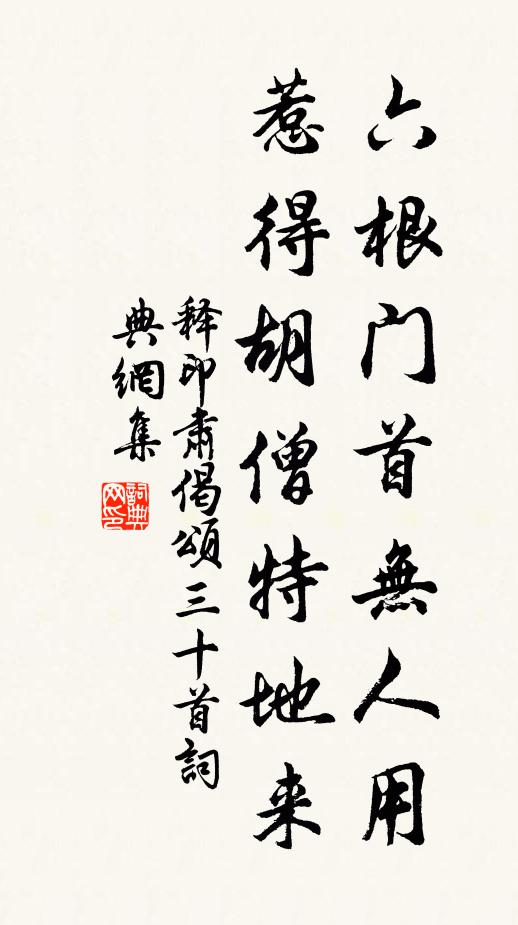 六根門首無人用
惹得胡僧特地来
释印肅偈頌三十首詞
典網集
詞典
网印